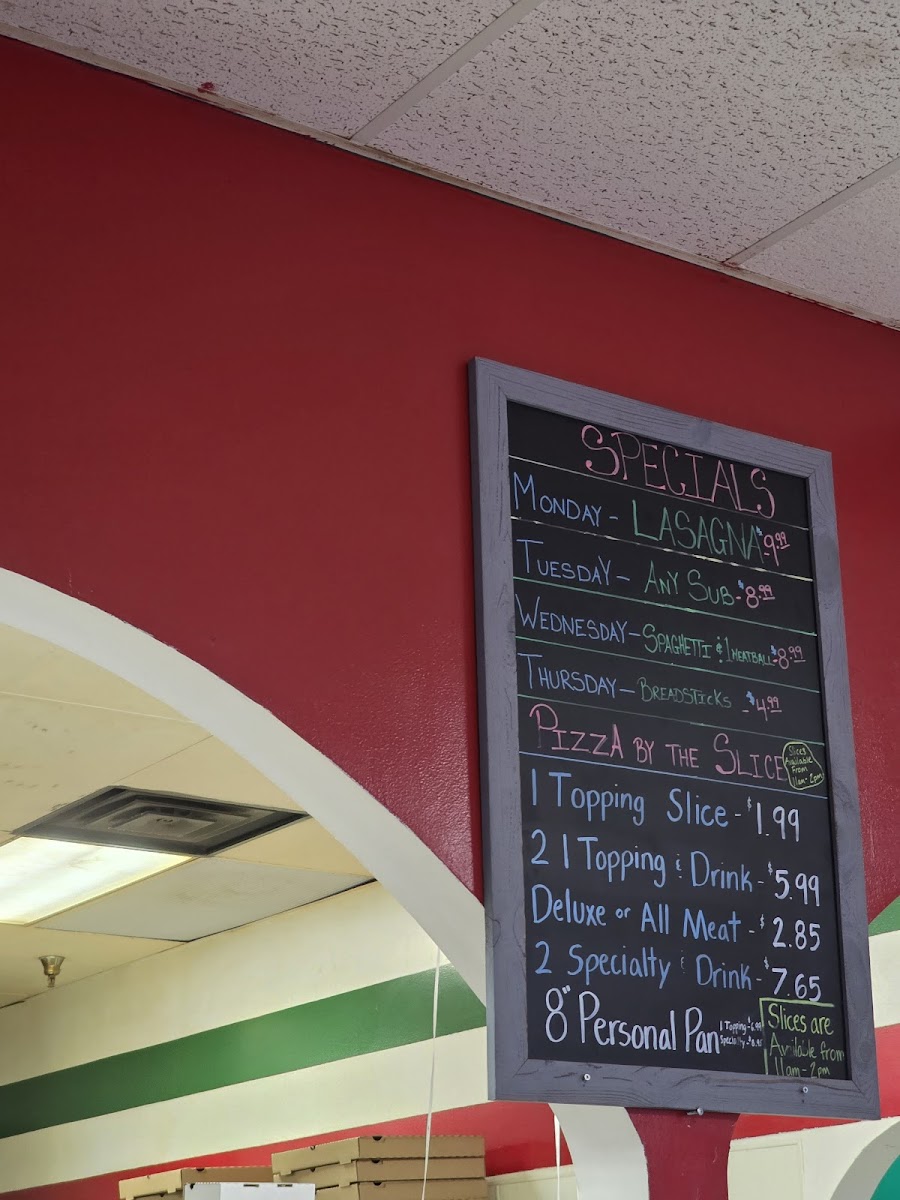 SPECIALS
MONDAY - LASAGNA $9.99
TUESDAY - ANY SUB - $8.99
WEDNESDAY - SPAGHETTI & 1 MEATBALL - $8.99
THURSDAY - BREADSTICKS - $4.99
PIZZA BY THE SLICE
Slices
Available
From
11am - 2pm
1 Topping Slice - $1.99
2 1 Topping & Drink - $5.99
Deluxe or All Meat - $2.85
2 Specialty & Drink - $7.65
8" Personal Pan
1 Topping - $6.99
Specialty - $8.95
Slices are
Available from
11am - 2pm